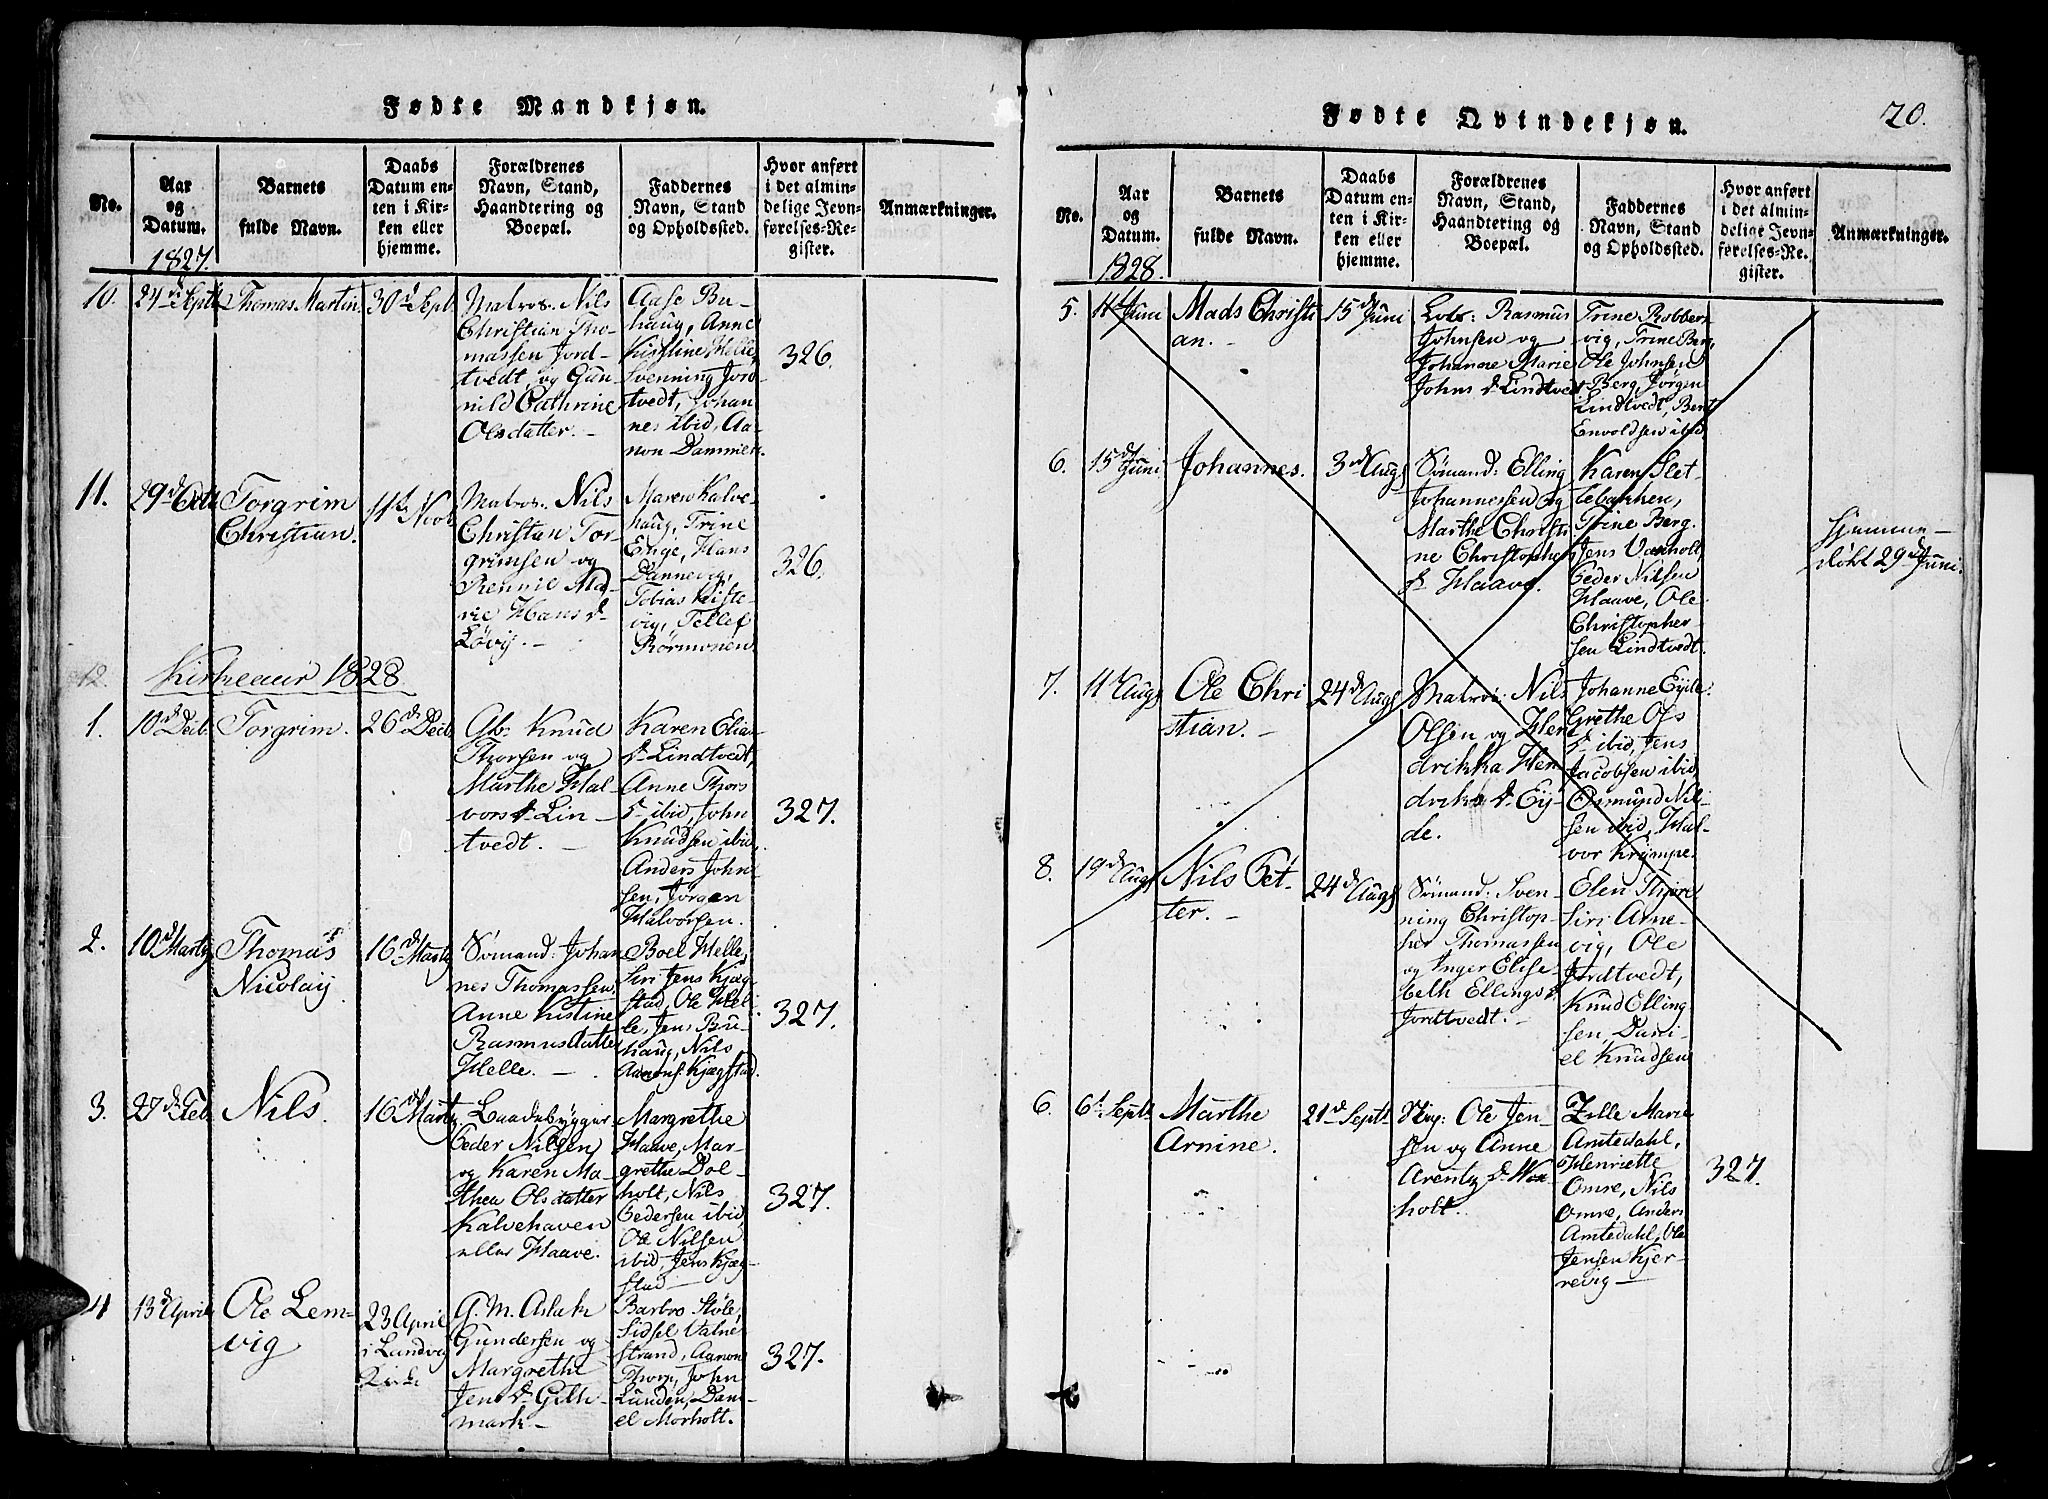 Fødte Mandkjøn.
No.
Aar
og
Datum.
1827.
Barnets
fulde Navn.
Daabs
Datum en-
ten i Kir-
ken eller
hjemme.
Forældrenes
Navn, Stand,
Haandtering og
Boepæl.
Faddernes
Navn, Stand
og Opholdssted.
Hvor anført
i det almin-
delige Jevn-
førelses-Re-
gister.
Anmærkninger.
10.
24 Septb
Thomas Martin
30 Septb
Matros. Nils
Christian Tho-
massen Jord-
tvedt, og Gun-
nild Cathrine
Olsdatter. -
Aase Bu-
haug, Anne
Kistine Helle,
Svenning Jord-
tvedt, Johan
nes ibid, Aa-
non Dammen.
326.
11.
29 Octb
Torgrim
Christian.
11 Novb
Matros. Nils
Christian Tor-
grimsen og
Rennie Ma-
rie Hans d.
Løvig. -
Maren Kalve-
haug, Trine
Enge, Hans
Dannevig,
Tobias Kiste-
vig, Tellef
Rørmonen.
326.
12.
Kirkeaar 1828.
1.
10 d Decb.
Torgrim.
26 d Decb.
Gb: Knud
Thorsen og
Marthe Hal-
vors d. Lin-
tvedt. -
Karen Elia-
d. Lindtvedt,
Anne Thors
d ibid, John
Knudsen ibid,
Anders John-
sen, Jørgen
Halvorsen.
327.
2.
10 d Marty
Thomas
Nicolay
16 d Marty
Sømand: Johan
nes Thomassen,
Anne Kistine
Rasmusdatter
Helle. -
Boel Helle,
Siri Jens Kjæg-
stad, Ole Hel-
le, Jens Bu-
haug, Nils
Aanons. Kjægstad.
327.
3.
27 d Feb.
Nils.
16 d Marty
Laadsbygger
Peder Nilsen
og Karen Ma-
thea Olsdatter
Kalvehaven
eller Haave.
Margrethe
Haave, Mar-
grethe Dol-
holt, Nils
Pedersen ibid,
Ole Nilsen
ibid, Jens Kjæg-
stad -
327.
4
13 d April
Ole Lem-
vig
23 April
i Landvig
Kirke
G. M. Aslak
Gundersen og
Margrethe
Jens d. Geth-
mark -
Barbro Støle,
Sidsel Valne-
strand, Aanon
Thorp, John
Lunden, Dani-
el Morholt.
327.
Fødte Qvindekjøn.
20.
No.
Aar
og
Datum.
1828.
Barnets
fulde Navn.
Daabs
Datum en-
ten i Kir-
ken eller
hjemme.
Forældrenes
Navn, Stand,
Haandtering og
Boepæl.
Faddernes
Navn, Stand
og Opholdssted.
Hvor anført
i det almin-
delige Jevn-
førelses-Re-
gister.
Anmærkninger.
5.
11 Juni
Mads Christi
an. -
15 d Juni
Lods: Rasmus
Johnsen og
Johanne Marie
Johns d. Lindtvedt
Trine Robbers-
vig, Trine Berg,
Ole Johnsen
Berg, Jørgen
Lindtvedt, Bent
Envoldsen ibid.
6.
15 d Juni
Johannes.
3 d Augs
Sømand: Elling
Johannessen og
Marthe Christi
ne Christophers
d. Haave.
Karen Slet-
tebakken,
Trine Berg.
Jens Vanholt,
Peder Nilsen
Haave, Ole
Christopher-
sen Lindtvedt.
hjemme-
døbt 29 d Juni.
7.
11 Augs
Ole Chri
stian. -
24 d Augs
Matros: Nils
Olsen og Hen
drikka Hen
driks d. Ey-
de.
Johanne Eyde.
Grethe Ols
d ibid, Jens
Jacobsen ibid,
Osmund Nil-
sen ibid, Hal-
vor Krympe.
8.
19 d Augs
Nils Pet-
ter. -
24 d Augs
Sømand: Sven-
ning Christop-
her Thomassen
og Inger Elise-
beth Ellings d.
Jordtvedt. -
Elen Thore
Siri Arne-
vig, Ole
Jordtvedt,
Knud Elling
sen, Dani-
el Knudsen
6.
6 Septb
Marthe
Arnine.
21 d Septb
Ole Jen-
sen og Anne
Arentz d. Vox
holt.
Zille Marie
Amtedahl,
Henriette
Omre, Nils
Omre, Anders
Amtedahl, Ole
Jensen Kjer-
revig -
327.